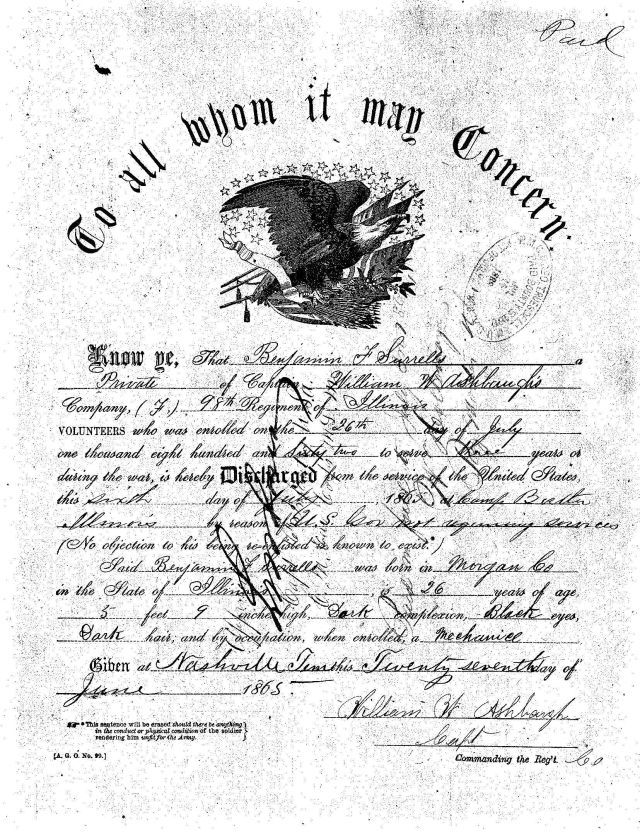 Paid
To all whom it may Concern:
Know ye, That Benjamin F Surrells a
Private of Captain William W Ashbaughs
Company, (F.) 98th Regiment of Illinois
VOLUNTEERS who was enrolled on the 26th day of July
one thousand eight hundred and Sixty two to serve three years or
during the war, is hereby Discharged from the service of the United States,
this Sixth day of July 1865, at Camp Butler
Illinois by reason of U.S. Gov not requiring services
(No objection to his being re-enlisted is known to exist.*)
Said Benjamin F Surrells was born in Morgan Co
in the State of Illinois, is 26 years of age,
5 feet 9 inches high, Dark complexion, Black eyes,
Dark hair, and by occupation, when enrolled, a Mechanice
Given at Nashville Tenn this Twenty seventh day of
June 1865.
William W Ashbaugh
Capt
Commanding the Reg't. Co
* This sentence will be erased should there be anything
in the conduct or physical condition of the soldier
rendering him unfit for the Army.
[A. G. O. No. 99.]